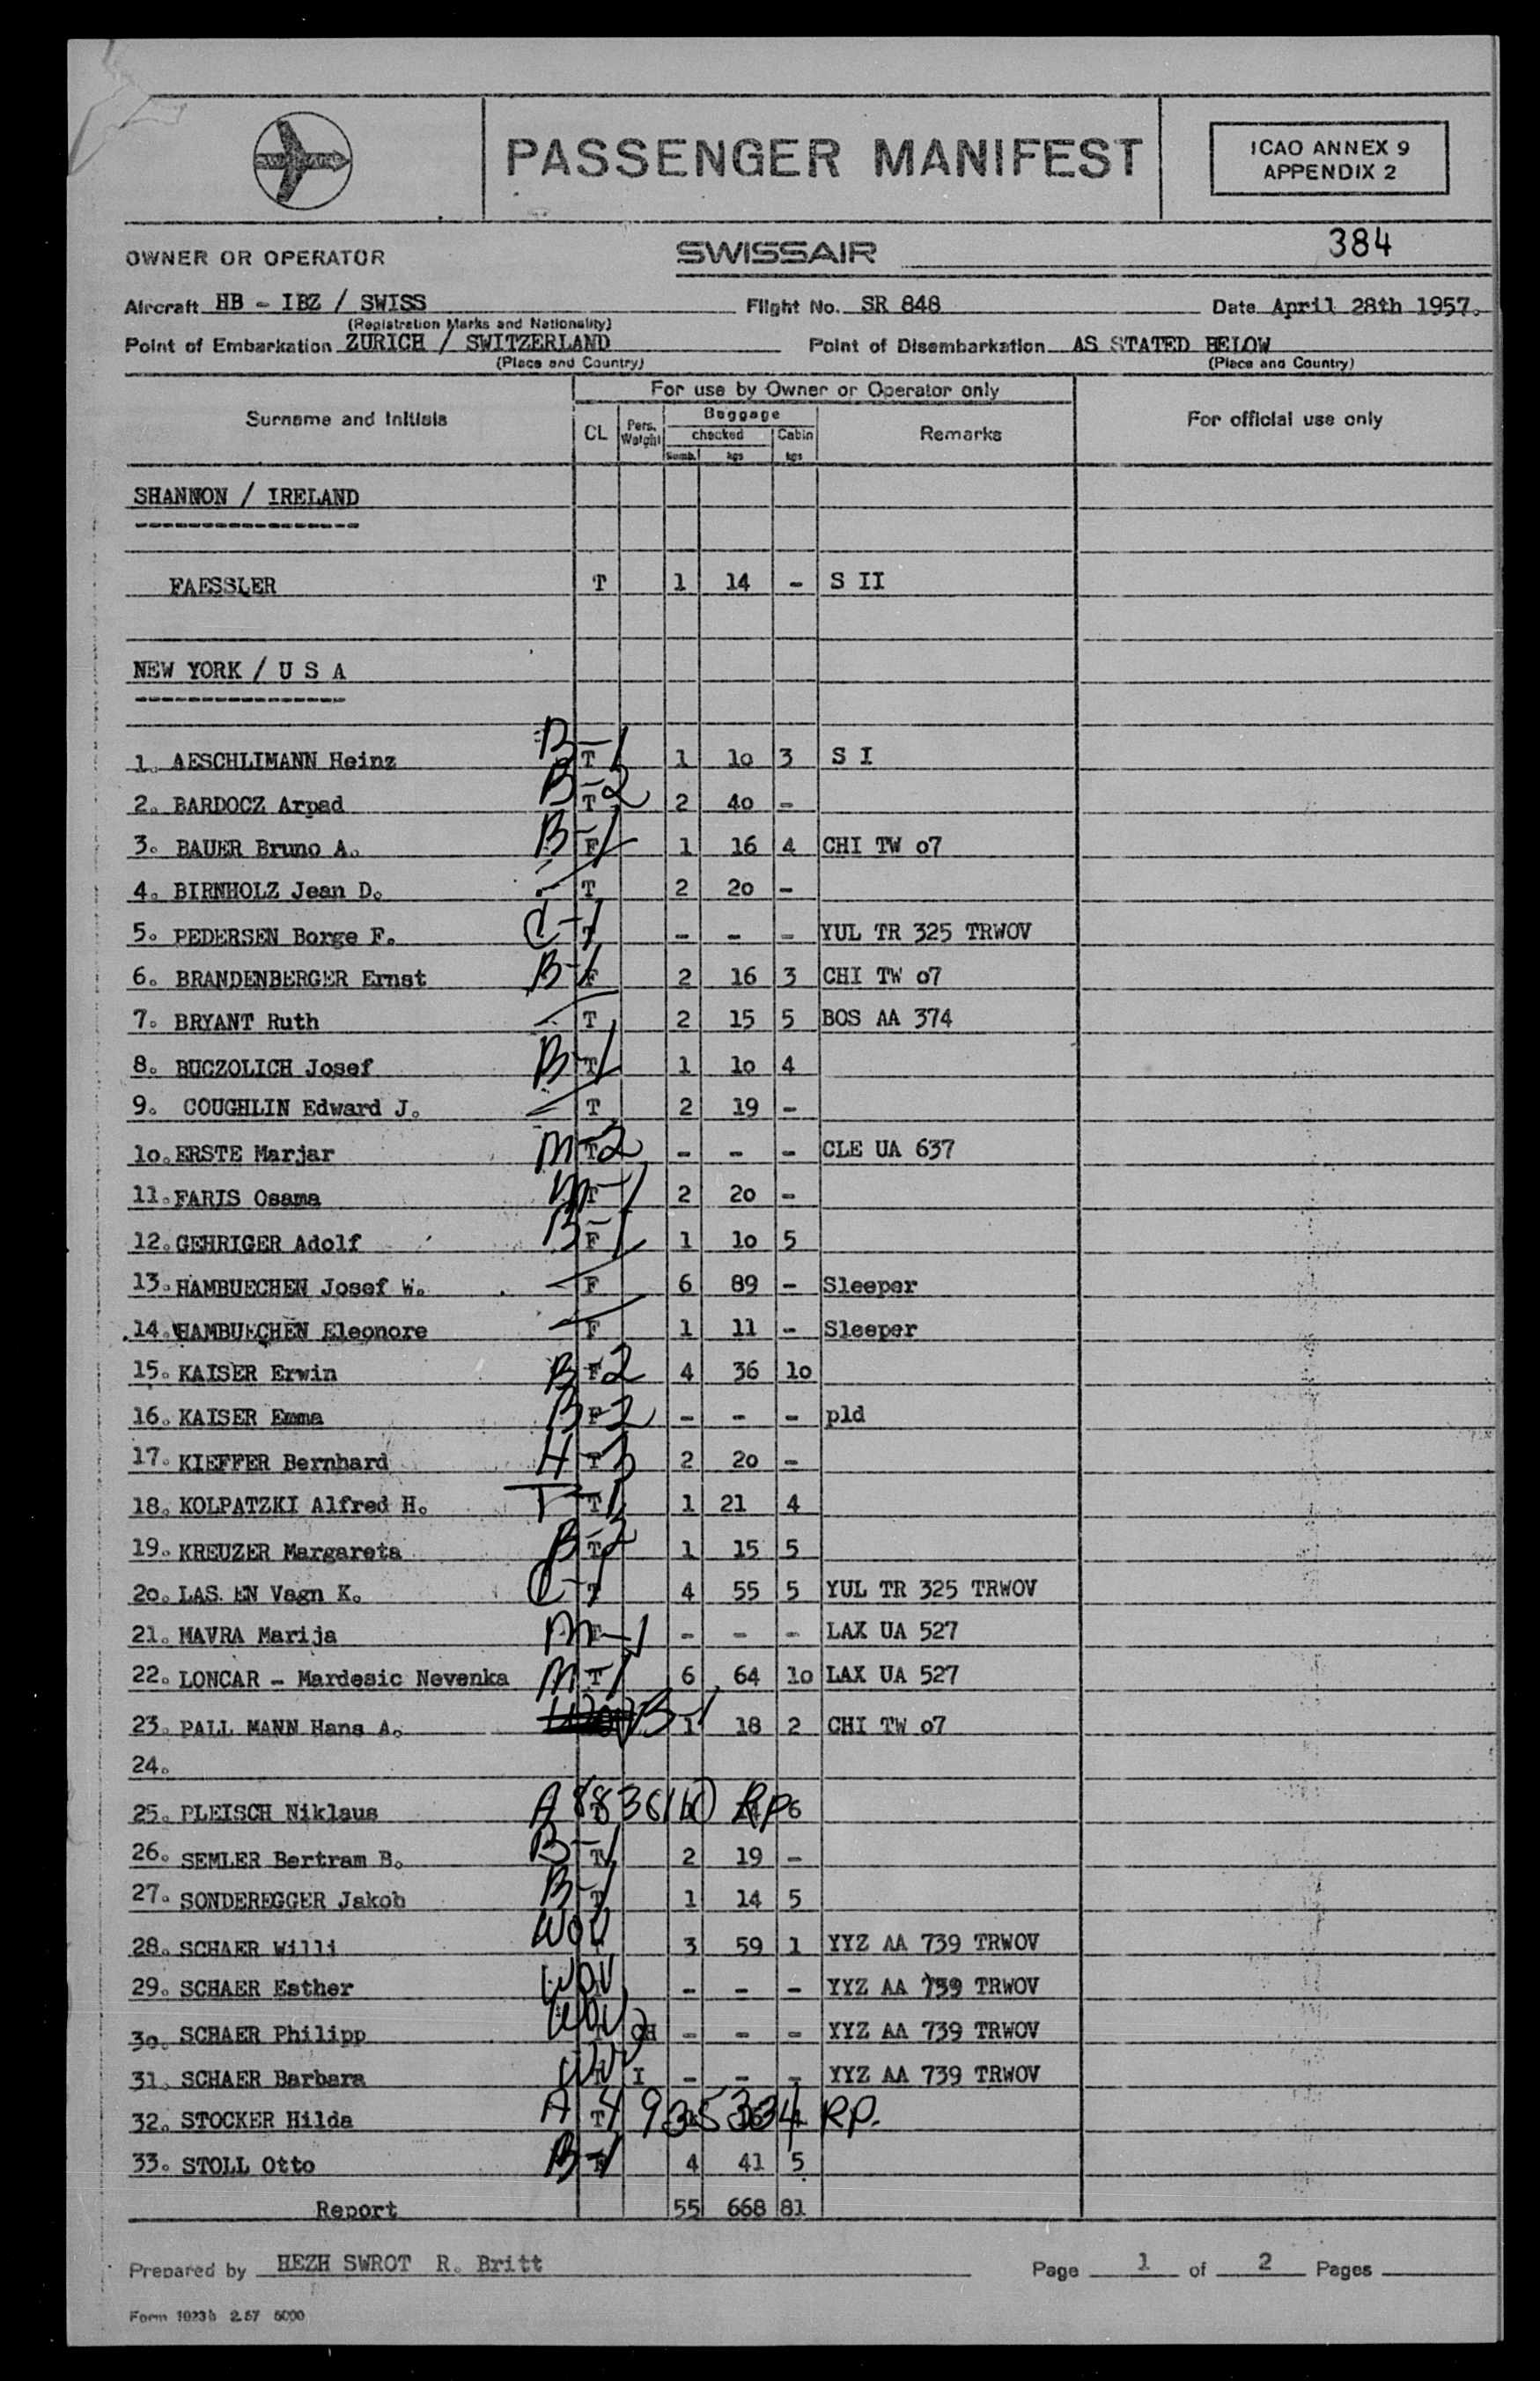 SWISSAIR
PASSENGER MANIFEST
ICAO ANNEX 9
APPENDIX 2
OWNER OR OPERATOR SWISSAIR 384
Aircraft HB - IBZ / SWISS Flight No. SR 848 Date April 28th 1957.
(Registration Marks and Nationality)
Point of Embarkation ZURICH / SWITZERLAND Point of Disembarkation AS STATED BELOW
(Place and Country) (Place and Country)
For use by Owner or Operator only
Surname and Initials CL Pers. Weight Baggage Remarks For official use only
checked Cabin
Numb. kgs kgs
SHANNON / IRELAND
FAESSLER T 1 14 - S II
NEW YORK / U S A
1. AESCHLIMANN Heinz B-1 T 1 10 3 S I
2. BARDOCZ Arpad B-2 T 2 40 -
3. BAUER Bruno A. B-1 F 1 16 4 CHI TW o7
4. BIRNHOLZ Jean D. T 2 20 -
5. PEDERSEN Borge F. C-1 T - - - YUL TR 325 TRWOV
6. BRANDENBERGER Ernst B-1 F 2 16 3 CHI TW o7
7. BRYANT Ruth T 2 15 5 BOS AA 374
8. BUCZOLICH Josef B-1 T 1 10 4
9. COUGHLIN Edward J. T 2 19 -
10. ERSTE Marjar M-2 T - - - CLE UA 637
11. FARIS Osama M-1 T 2 20 -
12. GEHRIGER Adolf B-1 F 1 10 5
13. HAMBUECHEN Josef W. F 6 89 - Sleeper
14. HAMBUECHEN Eleonore F 1 11 - Sleeper
15. KAISER Erwin B-2 F 4 36 10
16. KAISER Emma B-2 F - - - pld
17. KIEFFER Bernhard H-3 T 2 20 -
18. KOLPATZKI Alfred H. T-1 T 1 21 4
19. KREUZER Margareta B-2 T 1 15 5
20. LAS. EN Vagn K. C-1 T 4 55 5 YUL TR 325 TRWOV
21. MAVRA Marija M-1 T - - - LAX UA 527
22. LONCAR - Mardesic Nevenka M-1 T 6 64 10 LAX UA 527
23. PALL MANN Hans A. B-1 1 18 2 CHI TW o7
24.
25. PLEISCH Niklaus A RP 6
26. SEMLER Bertram B. B-1 T 2 19 -
27. SONDEREGGER Jakob B-1 T 1 14 5
28. SCHAER Willi WOV 3 59 1 YYZ AA 739 TRWOV
29. SCHAER Esther WOV - - - YYZ AA 739 TRWOV
30. SCHAER Philipp WOV T CH - - - YYZ AA 739 TRWOV
31. SCHAER Barbara WOV I - - - YYZ AA 739 TRWOV
32. STOCKER Hilda A T RP.
33. STOLL Otto B-1 4 41 5
Report 55 668 81
Prepared by HEZH SWROT R. Britt Page 1 of 2 Pages
Form 1023b 2.57 5000